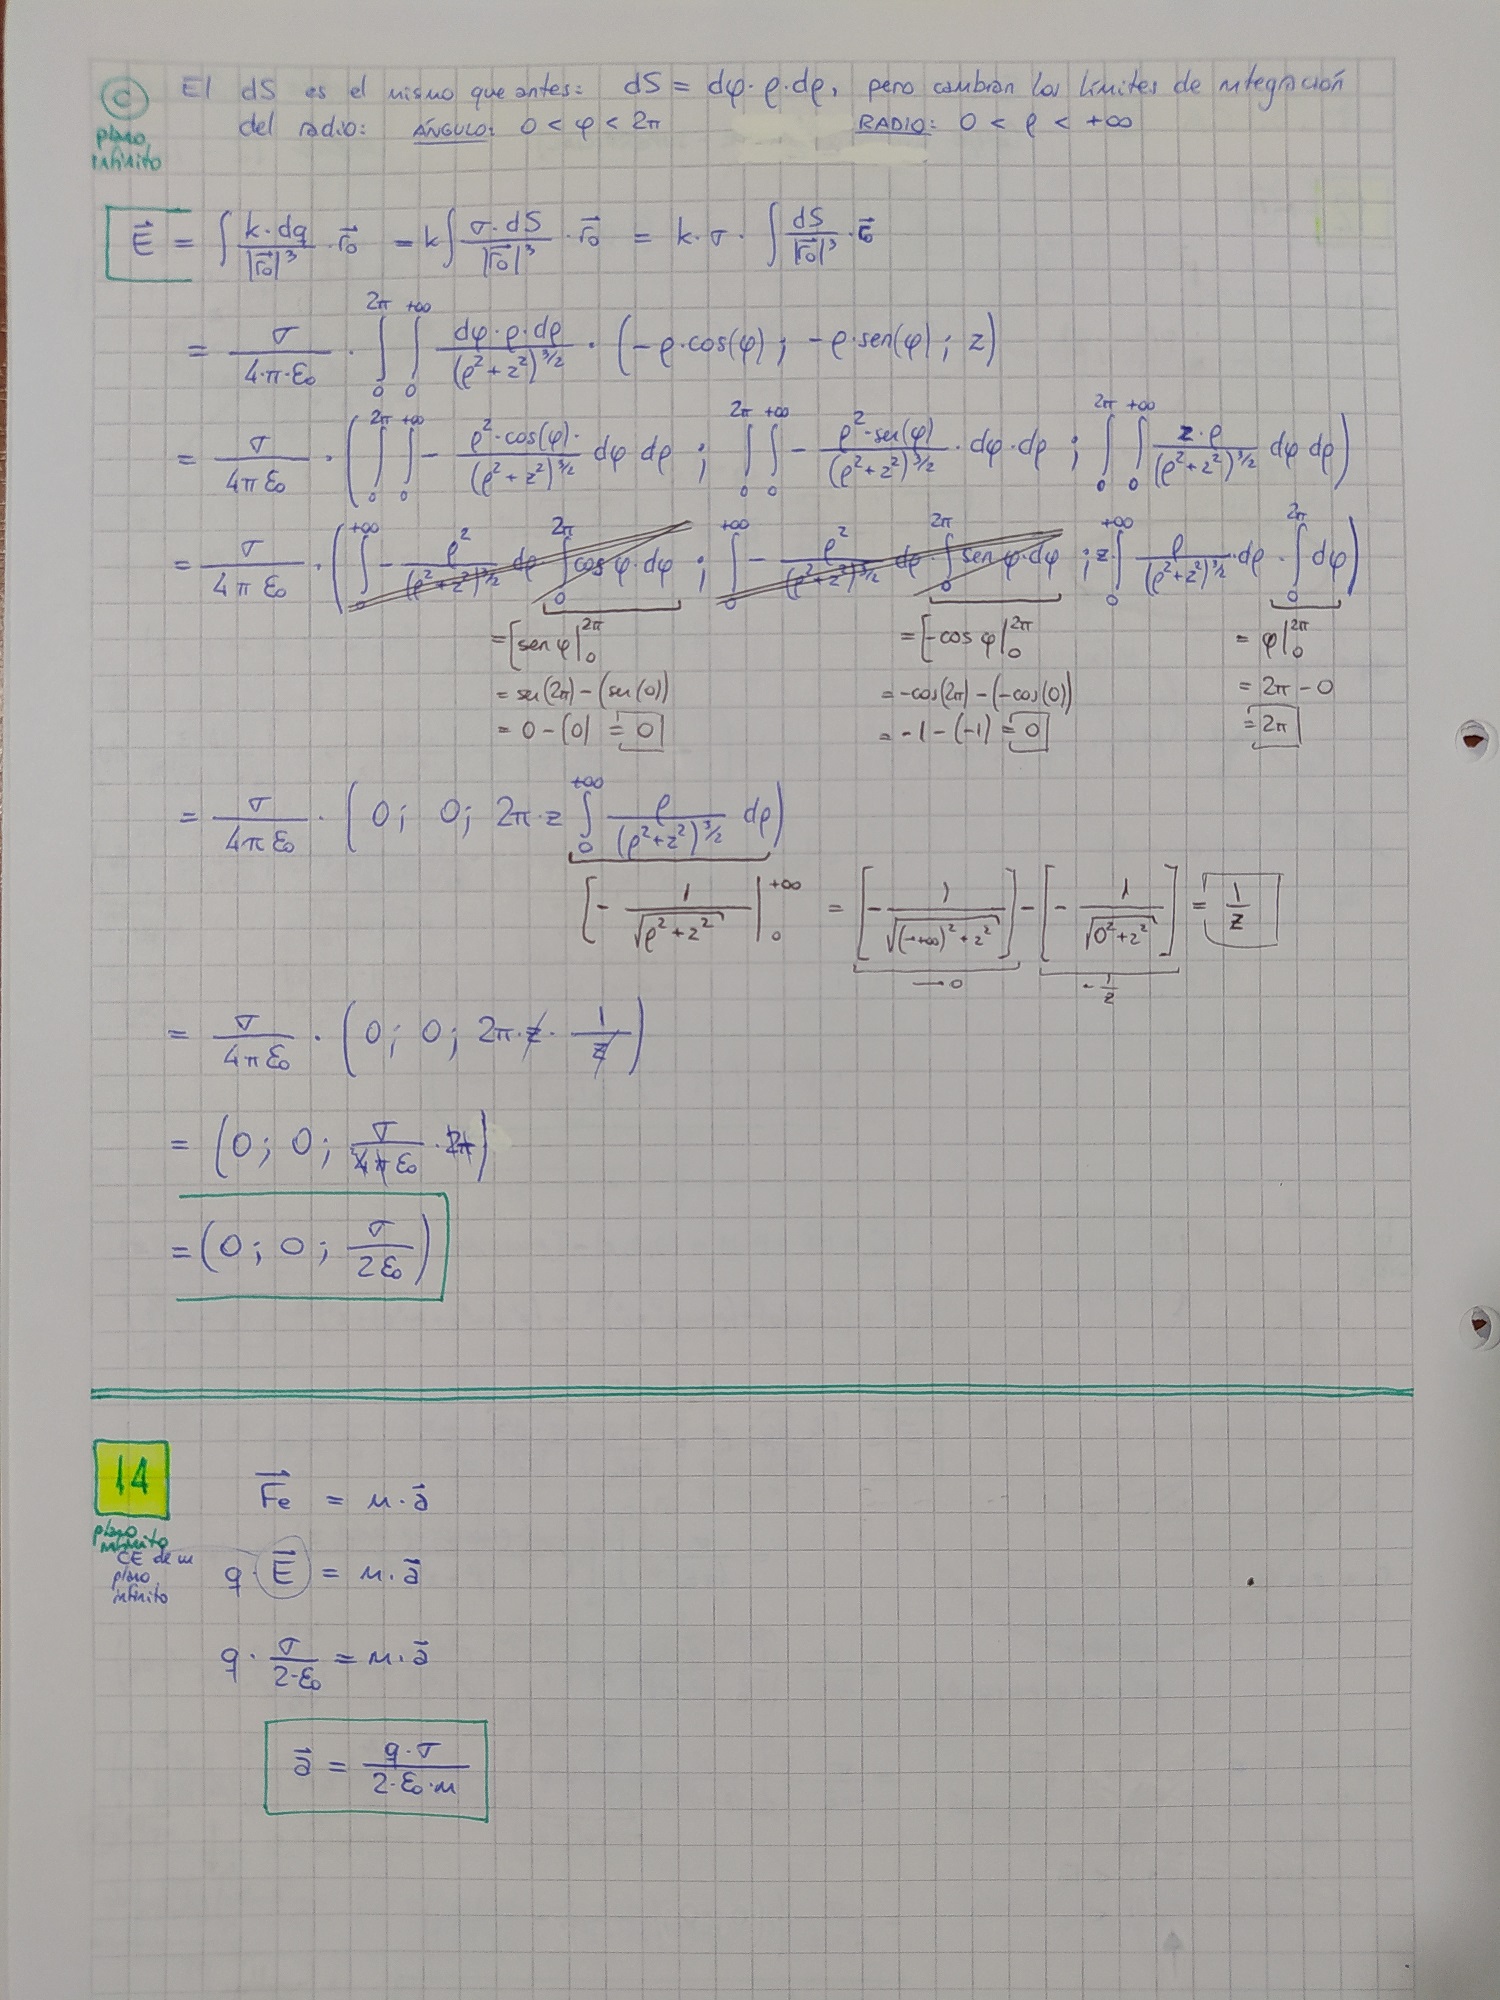 c) El dS es el mismo que antes: dS = dφ · ρ · dρ, pero cambian los límites de integración
plano infinito
del radio: ÁNGULO: 0 < φ < 2π RADIO: 0 < ρ < +∞
E⃗ = ∫ k·dq/|r₀⃗|³ · r₀⃗ = k∫ σ·dS/|r₀⃗|³ · r₀⃗ = k·σ· ∫ dS/|r₀⃗|³ · r₀⃗
= σ/(4·π·ε₀) · ∫₀^2π ∫₀^+∞ dφ·ρ·dρ/(ρ²+z²)^3/2 · (-ρ·cos(φ); -ρ·sen(φ); z)
= σ/(4π ε₀) · (∫₀^2π ∫₀^+∞ - ρ²·cos(φ)·/(ρ²+z²)^3/2 dφ dρ ; ∫₀^2π ∫₀^+∞ - ρ²·sen(φ)/(ρ²+z²)^3/2 · dφ·dρ ; ∫₀^2π ∫₀^+∞ z·ρ/(ρ²+z²)^3/2 dφ dρ)
= σ/(4π ε₀) · (∫₀^+∞ - ρ²/(ρ²+z²)^3/2 dρ ∫₀^2π cos φ·dφ ; ∫₀^+∞ - ρ²/(ρ²+z²)^3/2 dρ · ∫₀^2π sen φ·dφ ; z∫₀^+∞ ρ/(ρ²+z²)^3/2 · dρ · ∫₀^2π dφ)
= [sen φ|₀^2π = [-cos φ|₀^2π = φ|₀^2π
= sen(2π) - (sen(0)) = -cos(2π) - (-cos(0)) = 2π - 0
= 0 - (0) = 0 = -1 - (-1) = 0 = 2π
= σ/(4π ε₀) · (0; 0; 2π·z ∫₀^+∞ ρ/(ρ²+z²)^3/2 dρ)
[- 1/√(ρ²+z²) |₀^+∞ = [- 1/√((+∞)²+z²)] - [- 1/√(0²+z²)] = 1/z
→ 0 - 1/z
= σ/(4π ε₀) · (0; 0; 2π·z· 1/z)
= (0; 0; σ/(4π ε₀) · 2π)
= (0; 0; σ/(2ε₀))
14
plano infinito
F⃗e = m·a⃗
CE de un plano infinito
q·E⃗ = m·a⃗
q· σ/(2·ε₀) = m·a⃗
a⃗ = q·σ/(2·ε₀·m)